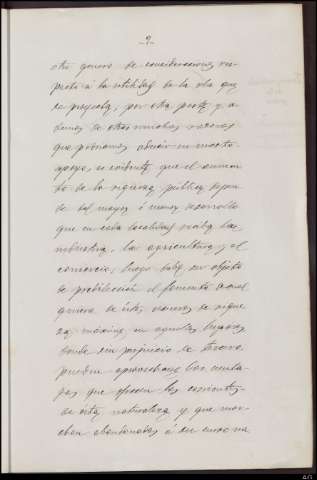 - 2 -
otro genero de consideraciones res-
pecto á la utilidad de la obra que
se proyecta, por otra parte y a-
demas de otras muchas razones
que podriamos aducir en nuestro
apoyo, es evidente que el aumen-
to de la riqueza pública depen-
de del mayor ó menor desarrollo
que en cada localidad reciba la
industria, la agricultura y el
comercio; luego debe ser objeto
de predileccion el fomento de
genero de éstos ramos de rique-
za máxime en aquellos lugares
donde sin perjuicio de tercero
pueden aprovecharse las venta-
jas que ofrecen las corrientes
de ésta naturaleza y que mar-
chan abandonadas á su curso na